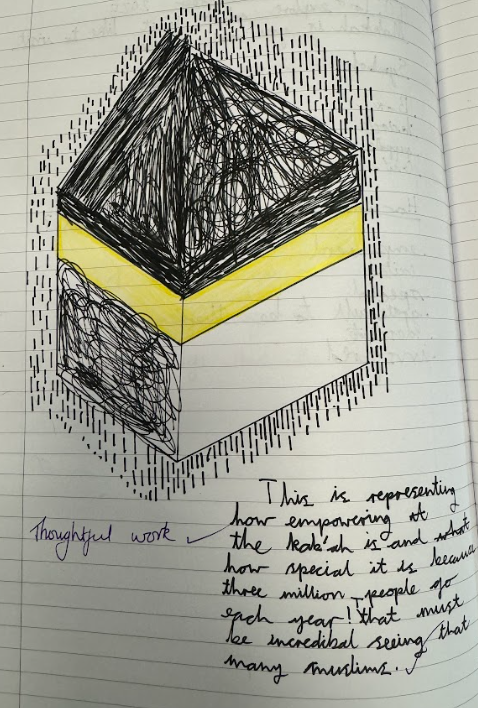 Thoughtful work ✓
This is representing
how empowering at
the kab'ah is and what
how special it is because
three million people go
each year! that must
be incredibal seeing that
many muslims. ✓